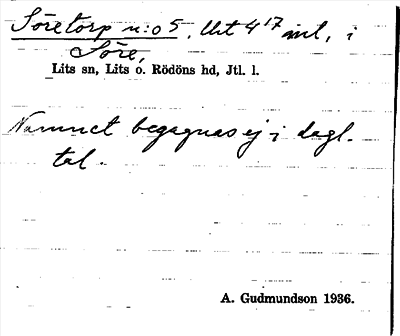 Söretorp n:o 5. Urt 4¹⁷ mtl, i
Söre,
Lits sn, Lits o. Rödöns hd, Jtl. l.
Namnet begagnas ej i dagl.
tal.
A. Gudmundson 1936.